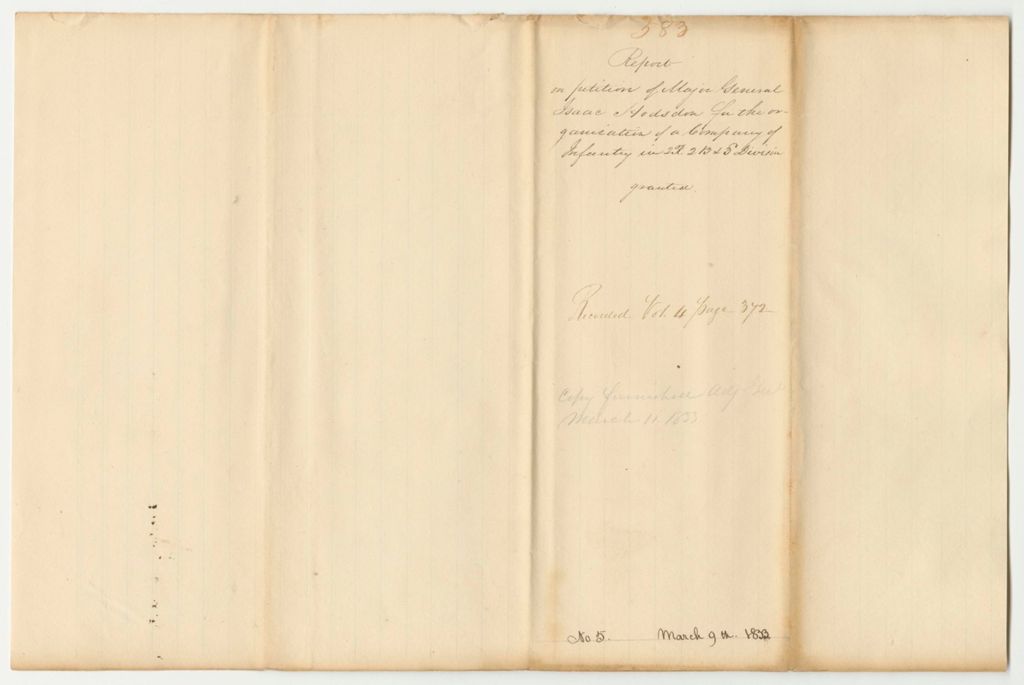 383
Report
on petition of Major General
Isaac Hodsdon for the or-
ganization of a Company of
Infantry in 2R. 2B & 5 Division
granted.
Recorded Vol. 4 Page 372
Copy furnished Adj Gen
March 11. 1833
No. 5. March 9th. 1833